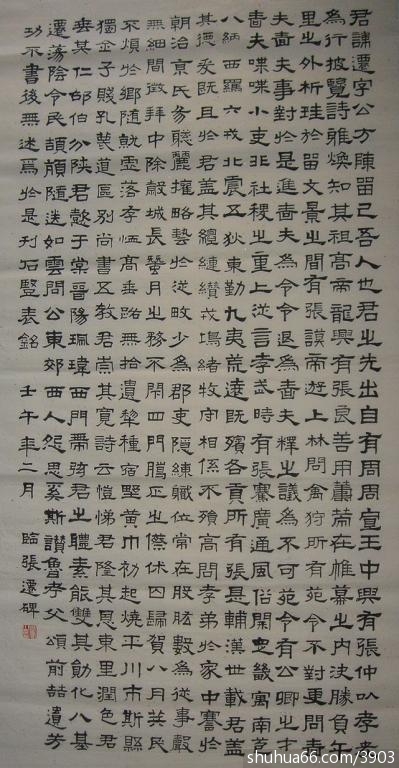 君諱遷字公方陳留己吾人也君之先出自有周周宣王中興有張仲以孝友
為行披覽詩雅煥知其祖高帝龍興有張良善用籌策在帷幕之內決勝負千
里之外析珪於留文景之間有張謨帝遊上林問禽狩所有苑令不對更問嗇
夫嗇夫事對於是進嗇夫為令令退為嗇夫釋之議為不可苑令有公卿之才
嗇夫喋喋小吏非社稷之重上從言孝武時有張騫廣通風俗開定畿寓南苞
八蠻西羈六戎北震五狄東勤九夷荒遠既殯各貢所有張是輔漢世載君蓋
其德爰既且於君蓋其繾縺纘戎鴻緒牧守相係不殞高問孝弟於家中謇於
朝治京氏易聰麗權略藝於從畋少為郡吏隱練職位常在股肱數為從事聲
無細聞徵拜中除穀城長蠶月之務不閉四門臘正之僚休囚歸賀八月筭民
不煩於鄉隨就虛落存恤高年路無拾遺犁種宿野黃巾初起燒平川市斯縣
獨全子賤孔蔑道區別尚書五教君崇其寬詩云愷悌君隆其恩東里潤色君
垂其仁邵伯分陝君懿于棠晉陽珮瑋西門帶弦君之體素能雙其勛化八基
遷蕩陰令民頡頏隨送如雲周公東西人怨思奚斯讚魯考父頌前喆遺芳
功不書後無述焉於是刊石豎表銘 壬午年二月 臨張遷碑
shuhua66.com/3903